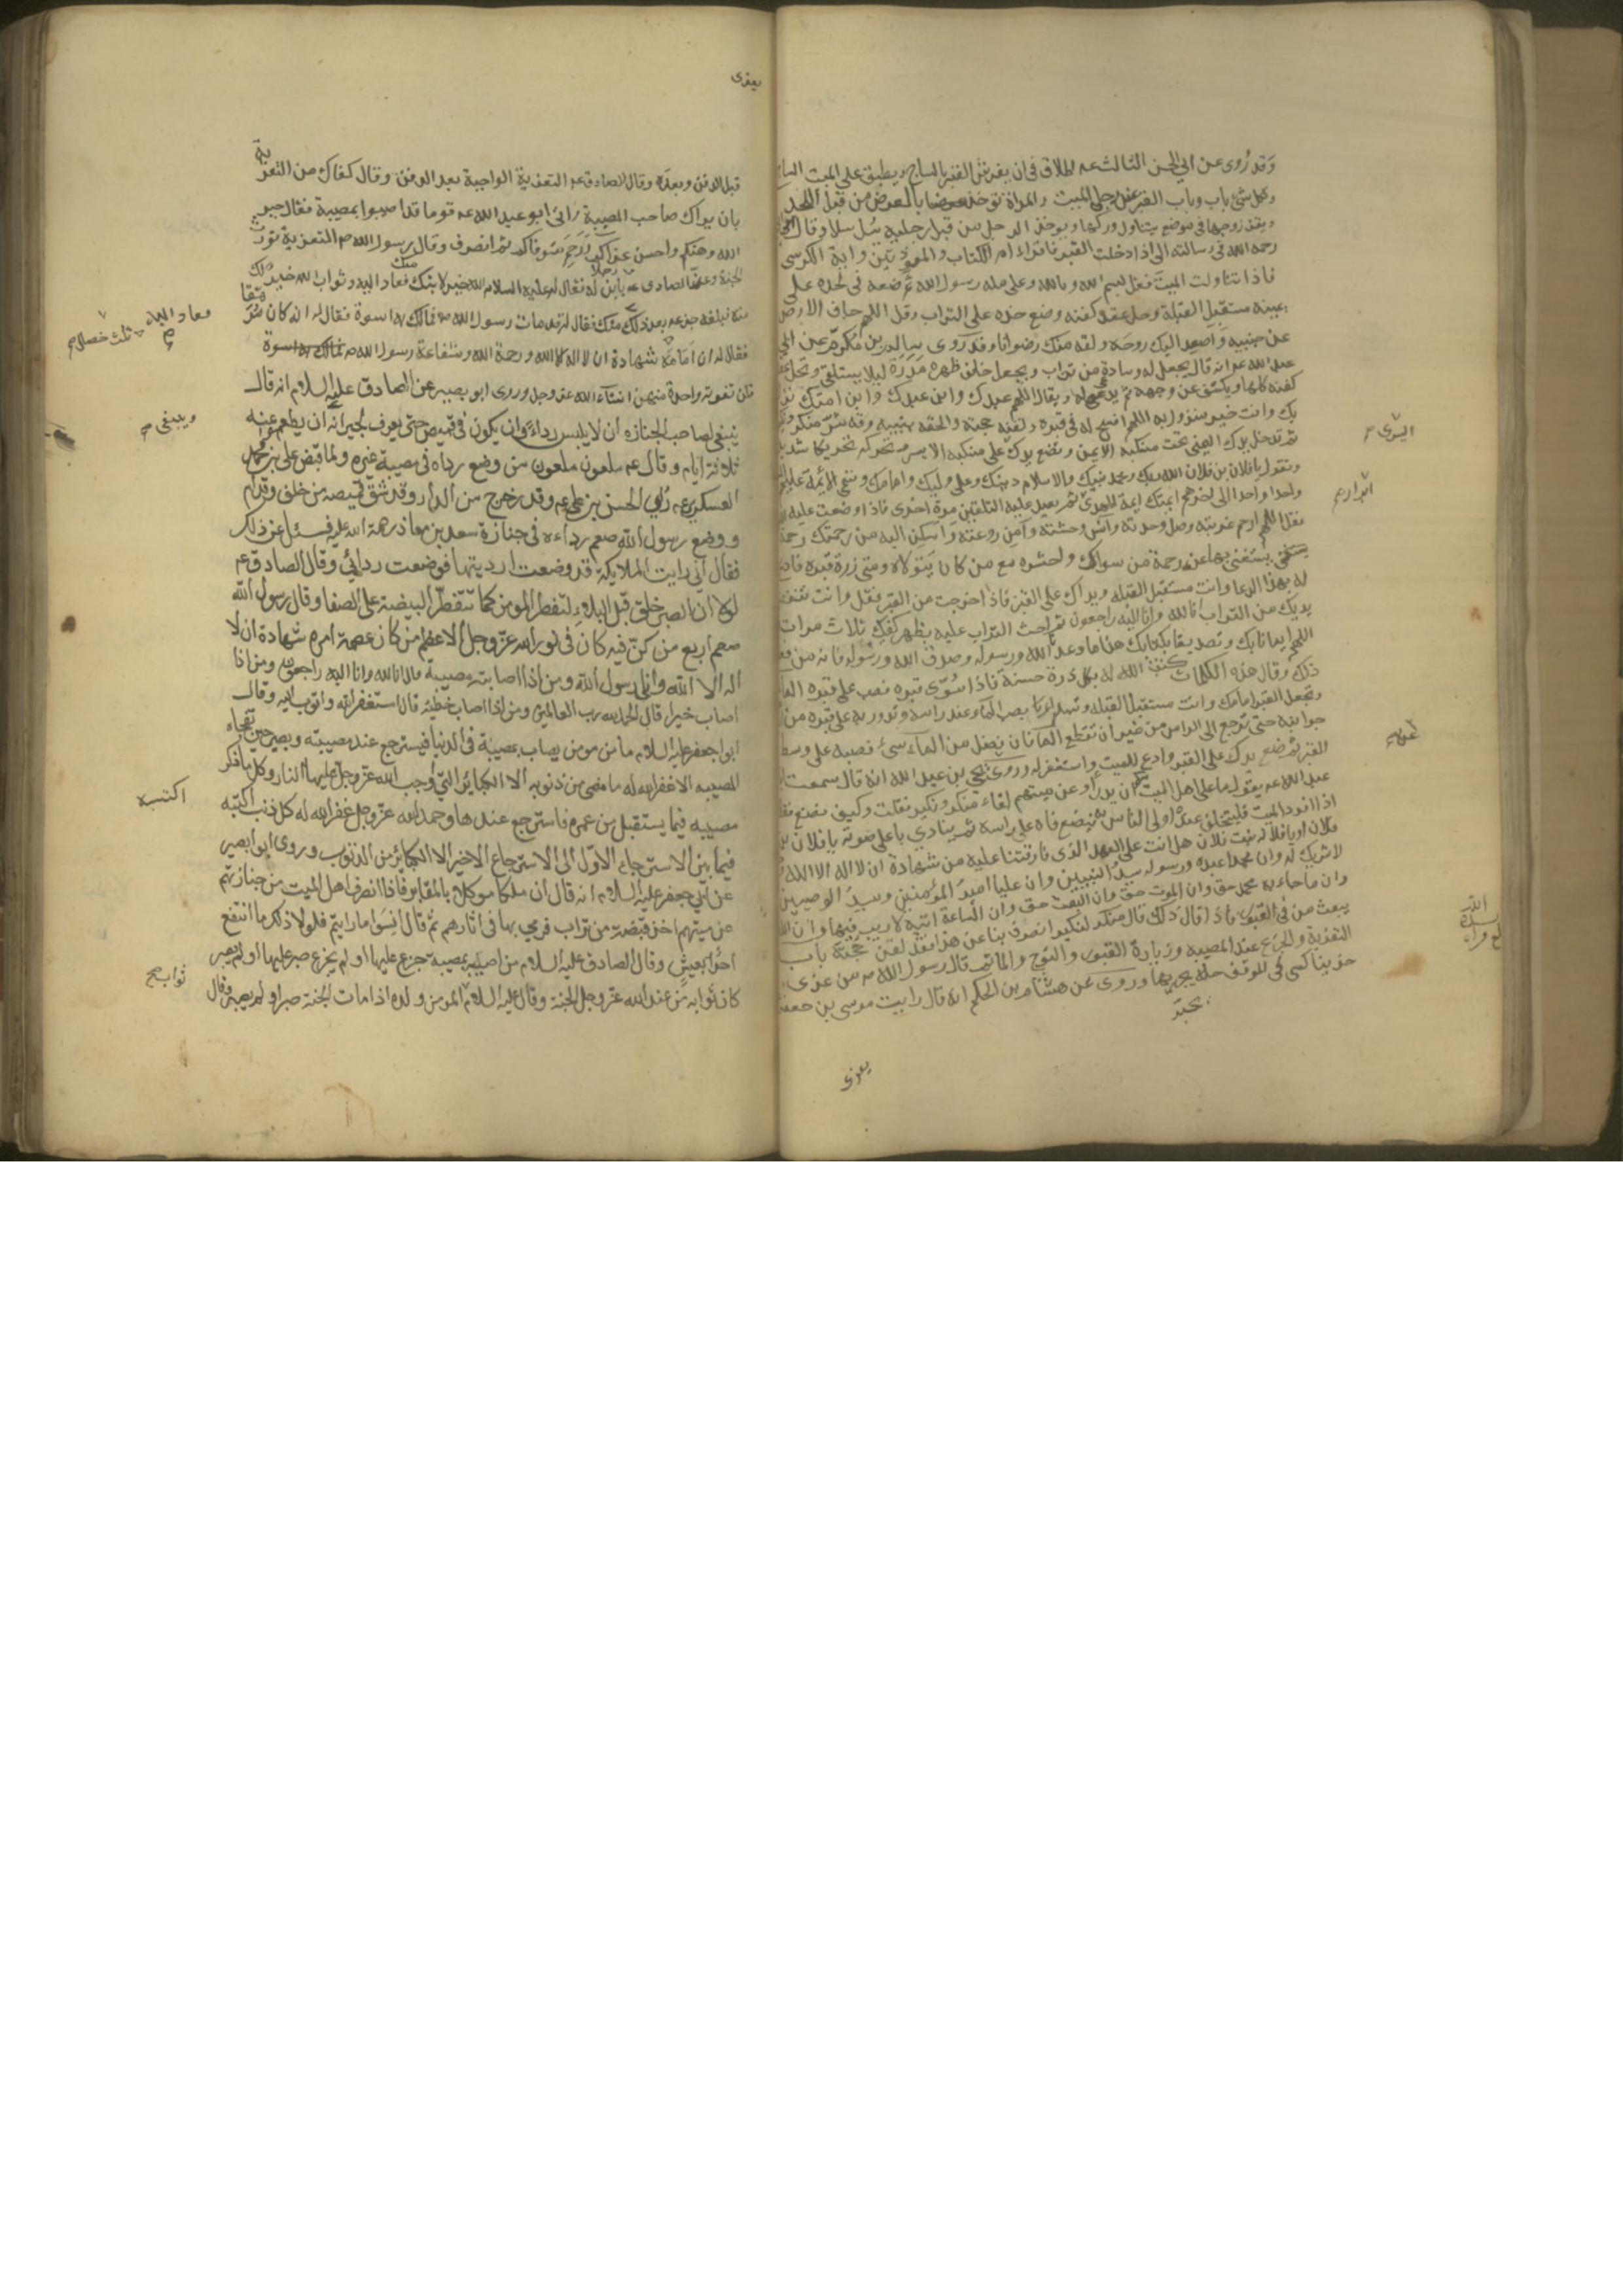 وقد رُوى عن ابي الحسن الثالث عه اطلاق في ان يفرش القبر بالساج ويطبق على الميت الساج
وكل شئ باب وباب القبر عند رجلى الميت والمراة تؤخذ بالعرض من قبل اللحد
ويقف زوجها في موضع يتناول وركها ويوخذ الرجل من قبل رجليه يسل سلا وقال ابي
رحمه الله في رسالته الى اذا دخلت القبر فاقراء ام الكتاب والمعوذتين واية الكرسى
فاذا تناولت الميت فقل بسم الله وبالله وعلى ملة رسول الله ثم ضعه في لحده على
يمينه مستقبل القبلة وحل عقد كفنه وضع خده على التراب وقل اللهم جاف الارض
عن جنبيه واصعد اليك روحه ولقه منك رضوانا وقد روى سالم بن مكرم عن ابي
عبد الله عه انه قال يجعل له وسادة من تراب ويجعل خلف ظهره مدرة ليلا يستلقى وتحل عقد
كفنه كلها ويكشف عن وجهه ثم يدعى له ويقال اللهم عبدك وابن عبدك وابن امتك نزل
بك وانت خير منزول به اللهم افسح له في قبره ولقنه حجته والحقه بنبيه وقه شر منكر ونكير
ثم تدخل يدك اليمنى تحت منكبه الايمن وتضع يدك على منكبه الايسر وتحركه تحريكا شديدا
اليسرى
وتقول يا فلان بن فلان الله ربك ومحمد نبيك والاسلام دينك وعلى وليك وامامك وتسمى الائمة عليهم
واحدا واحدا الى اخرهم ايمتك ايمة الهدى ثم تعيد عليه التلقين مرة اخرى فاذا وضعت عليه
ابرار
فقل اللهم ارحم غربته وصل وحدته وآنس وحشته وآمن روعته واسكن اليه من رحمتك رحمة
يستغنى بها عن رحمة من سواك واحشره مع من كان يتولاه ومتى زرت قبره فادع
له بهذا الدعا وانت مستقبل القبلة ويداك على القبر فاذا خرجت من القبر فقل وانت تنفض
يديك من التراب انا لله وانا اليه راجعون ثم احث التراب عليه بظهر كفيك ثلاث مرات
اللهم ايمانا بك وتصديقا بكتابك هذا ما وعدنا الله ورسوله وصدق الله ورسوله فانه من فعل
ذلك وقال هذه الكلمات كتب الله له بكل ذرة حسنة فاذا سُوّى قبره فصب على قبره الماء
وتجعل القبر امامك وانت مستقبل القبلة وتبدا بصب الماء عند راسه وتدور به على قبره من
جوانبه حتى ترجع الى الراس من غير ان تقطع الماء فان فضل من الماء شئ فصبه على وسط
القبر ثم ضع يدك على القبر وادع للميت واستغفر له وروى يحيى بن عبد الله انه قال سمعت
عبد الله عه يقول ما على اهل الميت منكم ان يدرأوا عن ميتهم لقاء منكر ونكير فقلت وكيف نصنع فقال
اذا افرد الميت فليتخلف عنده اولى الناس به فيضع فاه على راسه ثم ينادي باعلى صوته يا فلان بن
فلان او يا فلانة بنت فلان هل انت على العهد الذى فارقتنا عليه من شهادة ان لا اله الا الله
لا شريك له وان محمدا عبده ورسوله سيد النبيين وان عليا امير المؤمنين وسيد الوصيين
وان ما جاء به محمد حق وان الموت حق وان البعث حق وان الساعة اتية لا ريب فيها وان الله
يبعث من في القبور فاذا قال ذلك قال منكر لنكير انصرف بنا عن هذا فقد لقن حجته باب
التعزية والجزع عند المصيبه وزيارة القبور والنوح والماتم قال رسول الله ص من عزى
حزينا كسى في الموقف حلة يحبر بها وروى عن هشام بن الحكم انه قال رايت موسى بن جعفر
يحبر
يعزى
يعزى
قبل الدفن وبعده وقال الصادق عه التعزية الواجبة بعد الدفن وقال كفاك من التعزية
بان يراك صاحب المصيبة واتى ابو عبد الله عه قوما قد اصيبوا بمصيبة فقال جبر
الله وهنكم واحسن عزاكم ورحم متوفاكم ثم انصرف وقال رسول الله ص التعزية تورث
الجنة وعزى الصادق عه رجلا بابن له فقال له عليه السلام الله خير لابنك منك وثواب الله خير لك
منه فبلغه جزعه بعد ذلك فعاد اليه فقال له قد مات رسول الله ص فمالك به اسوة فقال له انه كان مرهقا
معاد اليه
ثلث خصال
فقال له ان امامه شهادة ان لا اله الا الله ورحمة الله وشفاعة رسول الله ص فمالك به اسوة
فلن تفوته واحدة منهن انشاء الله عز وجل وروى ابو بصير عن الصادق عليه السلام انه قال
ينبغي لصاحب الجنازه ان لا يلبس رداءً وان يكون في قميص حتى يعرف وينبغى لجيرانه ان يطعموا عنه
وينبغى
ثلاثة ايام وقال عه ملعون ملعون من وضع رداه في مصيبة غيره ولما قبض على بن محمد
العسكرى عه رُئي الحسن بن على عه وقد خرج من الدار وقد شق قميصه من خلف وقدام
ووضع رسول الله صعم رداءه في جنازة سعد بن معاذ رحمة الله عليه فسئل عن ذلك
فقال اني رايت الملايكة قد وضعت ارديتها فوضعت ردائي وقال الصادق عه
لولا ان الصبر خلق قبل البلاء لتفطر المومن كما تتفطر البيضة على الصفا وقال رسول الله
صعم اربع من كن فيه كان في نور الله عز وجل الاعظم من كان عصمة امره شهادة ان لا
اله الا الله واني رسول الله ومن اذا اصابته مصيبة قال انا لله وانا اليه راجعون ومن اذا
اصاب خيرا قال الحمد لله رب العالمين ومن اذا اصاب خطيئة قال استغفر الله واتوب اليه وقال
ابو جعفر عليه السلام ما من مومن يصاب بمصيبة في الدنيا فيسترجع عند مصيبته ويصبر حين تفجاه
المصيبه الا غفر الله له ما مضى من ذنوبه الا الكبائر التي اوجب الله عز وجل عليها النار وكل ما ذكر
مصيبه فيما يستقبل من عمره فاسترجع عندها وحمد الله عز وجل غفر الله له كل ذنب اكتسبه
اكتسبه
فيما بين الاسترجاع الاول الى الاسترجاع الاخير الا الكبائر من الذنوب وروى ابو بصير
عن ابي جعفر عليه السلام انه قال ان ملكا موكلا بالمقابر فاذا انصرف اهل الميت من جنازتهم
عن ميتهم اخذ قبضة من تراب فرمي بها في اثارهم ثم قال انسوا ما رايتم فلولا ذلك ما انتفع
احد بعيش وقال الصادق عليه السلام من اصيب بمصيبة جزع عليها او لم يجزع صبر عليها او لم يصبر
كان ثوابه من عند الله عز وجل الجنة وقال عليه السلام ثواب المومن من ولده اذا مات الجنة صبر او لم يصبر وقال
ثواب صح